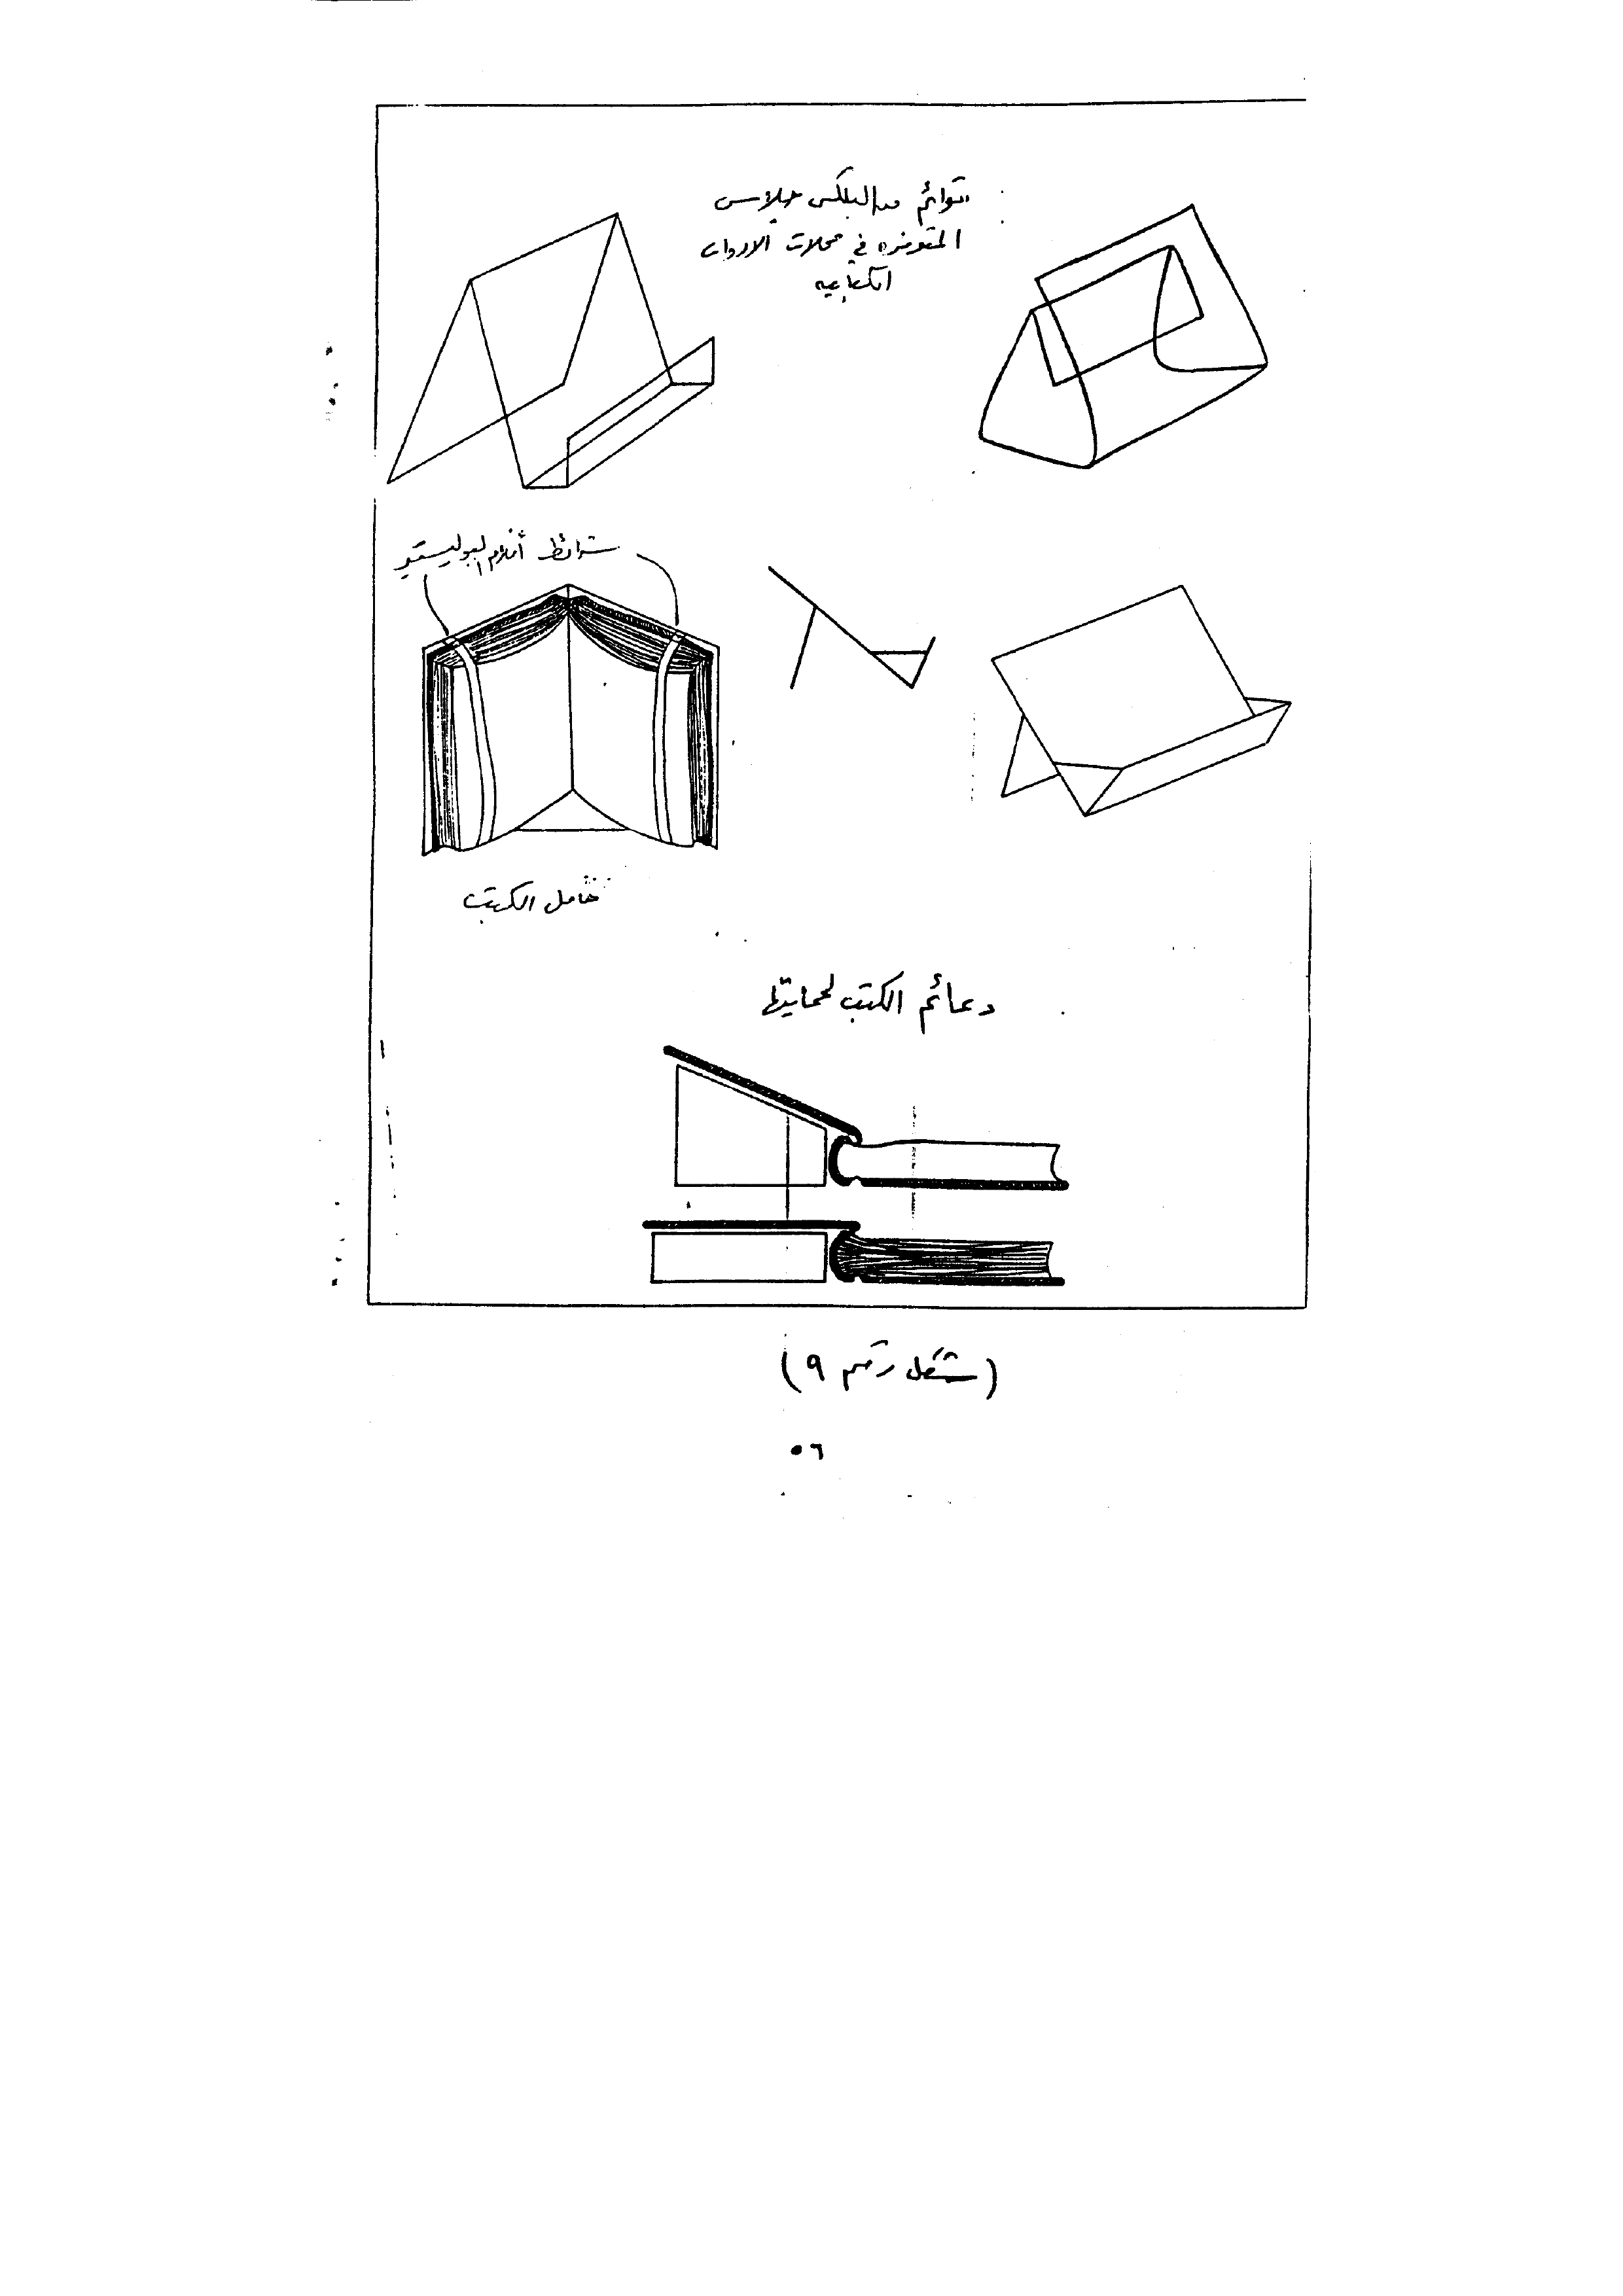 قوائم من البلكس جلاس
المتوفره في محلات الادوات
الكتابيه
شرائط أفلام البوليستر
حامل الكتب
دعائم الكتب لحمايتها
(شكل رقم ٩)
٥٦